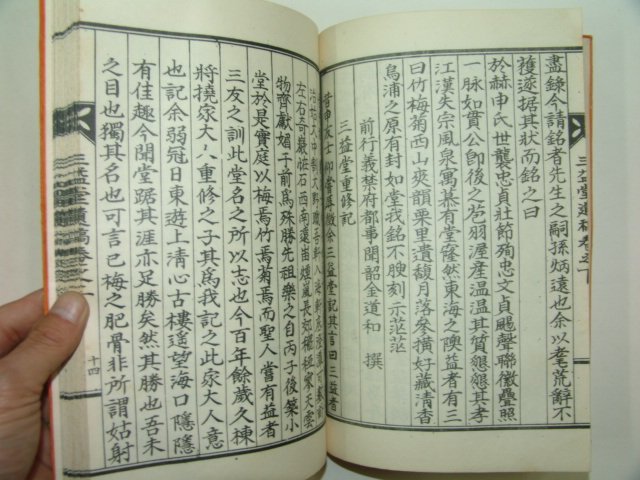 盡錄今請銘者先生之嗣孫炳遠也余以耄荒辭不
獲遂据其狀而銘之曰
於赫申氏世襲忠貞壯節殉忠文貞颺聲聯徽疊照
一脉如貫公卽後之苞羽渥産溫溫其質懇懇其孝
江漢失宗風泉寓慕有堂窿然東海之隩益者有三
曰竹梅菊西山爽韻栗里遺馥月落參橫好藏清香
烏浦之原有封如堂我銘不腴刻示茫茫
三益堂重修記
前行義禁府都事聞韶金道和 撰
三益堂記其言曰三益者
物齊獻媚于前爲殊勝先祖樂之自丙子後築小
堂於是實庭以梅焉竹焉菊焉而聖人嘗有益者
三友之訓此堂名之所以志也今百年餘歲久棟
將撓家大人重修之子其爲我記之此家大人意
也記余弱冠日東遊上清心古樓遥望海口隱隱
有佳趣今聞堂踞其涯亦足勝矣然其勝也吾未
之目也獨其名也可言已梅之肥骨非所謂姑射
三益堂遺稿卷之一
十四